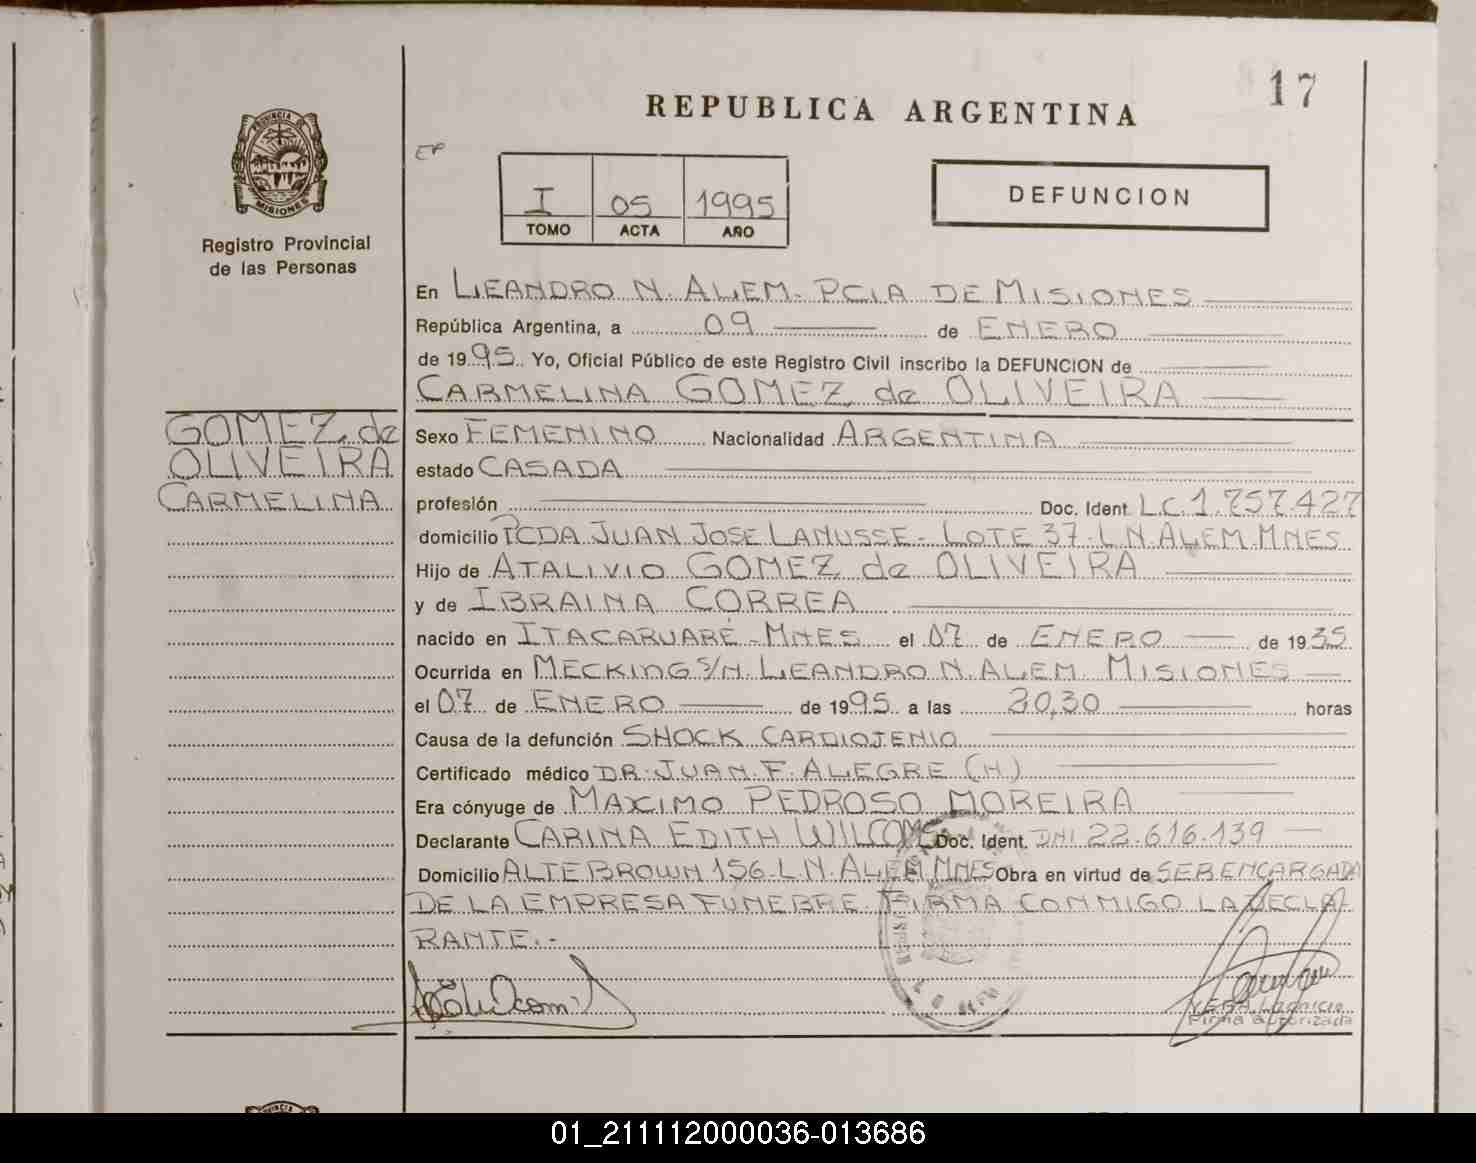 17
REPUBLICA ARGENTINA
PROVINCIA DE
MISIONES
EP
I 05 1995
TOMO ACTA AÑO
DEFUNCION
Registro Provincial
de las Personas
En LEANDRO N. ALEM - PCIA DE MISIONES
República Argentina, a 09 de ENERO
de 1995 Yo, Oficial Público de este Registro Civil inscribo la DEFUNCION de
CARMELINA GOMEZ de OLIVEIRA
GOMEZ de
OLIVEIRA
CARMELINA
Sexo FEMENINO Nacionalidad ARGENTINA
estado CASADA
profesión Doc. Ident. L.C. 1.757.427
domicilio PCDA JUAN JOSE LANUSSE - LOTE 37 - L N. ALEM. MNES
Hijo de ATALIVIO GOMEZ de OLIVEIRA
y de IBRAINA CORREA
nacido en ITACARUARÉ - MNES el 07 de ENERO de 1935
Ocurrida en MECKING S/N. LEANDRO N. ALEM. MISIONES
el 07 de ENERO de 1995 a las 20,30 horas
Causa de la defunción SHOCK CARDIOJENIO
Certificado médico DR. JUAN F. ALEGRE (H)
Era cónyuge de MAXIMO PEDROSO MOREIRA
Declarante CARINA EDITH WILCOMS Doc. Ident. DNI 22.616.139
Domicilio ALTE BROWN 156 - L N. ALEM MNES Obra en virtud de SER ENCARGADA
DE LA EMPRESA FUNEBRE. FIRMA CONMIGO LA DECLA-
RANTE.-
Firma autorizada
01_211112000036-013686